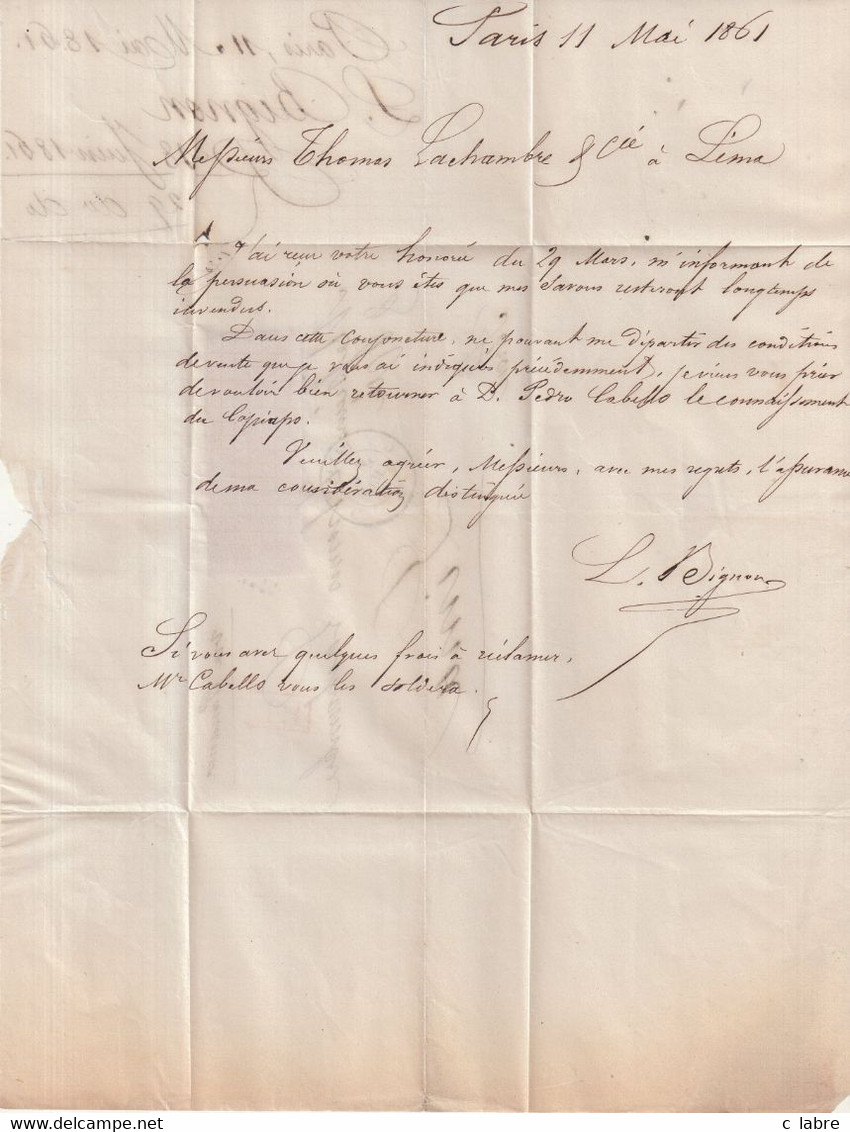 Paris 11 Mai 1861
Messieurs Thomas Lachambre & Cie à Lima
J'ai reçu votre honorée du 29 Mars, m'informant de
la persuasión où vous êtes que mes Savons resteront longtemps
invendus.
Dans cette conjoncture, ne pouvant me départir des conditions
de vente que je vous ai indiquées précédemment, je viens vous prier
de vouloir bien retourner à D. Pedro Cabello le connaissement
du Copiapo.
Veuillez agréer, Messieurs, avec mes regrets, l'assurance
de ma considération distinguée
L. Bignon
Si vous avez quelques frais à réclamer,
Mr Cabello vous les soldera.
Paris, 11 Mai 1861.
L. Bignon
Juin 1861.
c labre